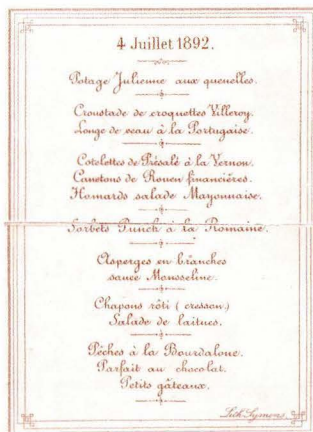 4 Juillet 1892.
Potage Julienne aux quenelles.
Croustade de croquettes Villeroy.
Longe de veau à la Portugaise.
Cotelettes de Présalé à la Vernon.
Canetons de Rouen financières.
Homards salade Mayonnaise.
Sorbets Punch à la Romaine.
Asperges en branches
sauce Mousseline.
Chapons rôti (cresson.)
Salade de laitues.
Pêches à la Bourdaloue.
Parfait au chocolat.
Petits gâteaux.
Lith. Symons.